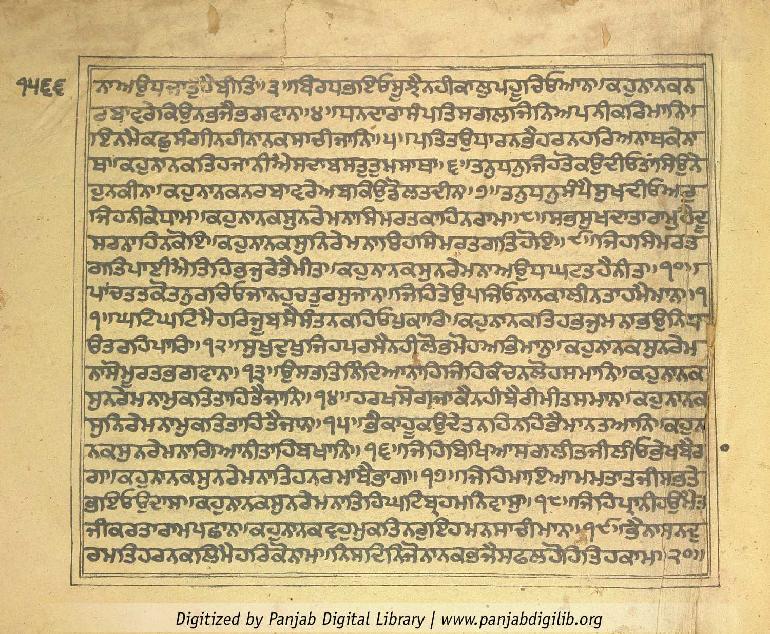 ੧੫੬੬
ਨਾਅਉਧਜਾਤੁਹੈਬੀਤਿ॥੩॥ਬਿਰਧਭਇਓਸੂਝੈਨਹੀਕਾਲੁਪਹੂਚਿਓਆਨ॥ਕਹੁਨਾਨਕਨ
ਰਬਾਵਰੇਕਿਉਨਭਜੈਭਗਵਾਨਾ॥੪॥ਧਨਦਾਰਾਸੰਪਤਿਸਗਲਜਿਨਿਅਪਨੀਕਰਿਮਾਨਿ॥
ਇਨਮੈਕਛੁਸੰਗੀਨਹੀਨਾਨਕਸਾਚੀਜਾਨਿ॥੫॥ਪਤਿਤਉਧਾਰਨਭੈਹਰਨਹਰਿਅਨਾਥਕੇਨਾ
ਥ॥ਕਹੁਨਾਨਕਤਿਹਜਾਨੀਐਸਦਾਬਸਤੁਤੁਮਸਾਥ॥੬॥ਤਨੁਧਨੁਜਿਹਤੋਕਉਦੀਓਤਾਂਸਿਉਨੇ
ਹੁਨਕੀਨ॥ਕਹੁਨਾਨਕਨਰਬਾਵਰੇਅਬਕਿਉਡੋਲਤਦੀਨ॥੭॥ਤਨੁਧਨੁਸੰਪੈਸੁਖਦੀਓਅਰੁ
ਜਿਹਨੀਕੇਧਾਮ॥ਕਹੁਨਾਨਕਸੁਨਰੇਮਨਾਸਿਮਰਤਕਾਹਿਨਰਾਮ॥੮॥ਸਭਸੁਖਦਾਤਾਰਾਮੁਹੈਦੂ
ਸਰਨਾਹਿਨਕੋਇ॥ਕਹੁਨਾਨਕਸੁਨਿਰੇਮਨਾਤਿਹਸਿਮਰਤਗਤਿਹੋਇ॥੯॥ਜਿਹਸਿਮਰਤ
ਗਤਿਪਾਈਐਤਿਹਿਭਜੁਰੇਤੈਮੀਤ॥ਕਹੁਨਾਨਕਸੁਨਰੇਮਨਾਅਉਧਘਟਤਹੈਨੀਤ॥੧੦॥
ਪਾਂਚਤਤਕੋਤਨੁਰਚਿਓਜਾਨਹੁਚਤੁਰਸੁਜਾਨ॥ਜਿਹਿਤੇਉਪਜਿਓਨਾਨਕਾਲੀਨਤਾਹਿਮੈਮਾਨ॥੧
੧॥ਘਟਿਘਟਿਮੈਹਰਿਜੂਬਸੈਸੰਤਨਕਹਿਓਪੁਕਾਰਿ॥ਕਹੁਨਾਨਕਤਿਹਭਜੁਮਨਾਭਉਨਿਧਿ
ਉਤਰਹਿਪਾਰਿ॥੧੨॥ਸੁਖੁਦੁਖੁਜਿਹਪਰਸੈਨਹੀਲੋਭੁਮੋਹਅਭਿਮਾਨੁ॥ਕਹੁਨਾਨਕਸੁਨਰੇਮ
ਨਾਸੋਮੂਰਤਭਗਵਾਨ॥੧੩॥ਉਸਤਤਿਨਿੰਦਿਆਨਾਹਿਜਿਹਿਕੰਚਨਲੋਹਸਮਾਨਿ॥ਕਹੁਨਾਨਕ
ਸੁਨਰੇਮਨਾਮੁਕਤਿਤਾਹਿਤੈਜਾਨਿ॥੧੪॥ਹਰਖਸੋਗਜਾਕੈਨਹੀਬੈਰੀਮੀਤਸਮਾਨ॥ਕਹੁਨਾਨਕ
ਸੁਨਿਰੇਮਨਾਮੁਕਤਿਤਾਹਿਤੈਜਾਨ॥੧੫॥ਭੈਕਾਹੂਕਉਦੇਤਨਾਹਿਨਹਿਭੈਮਾਨਤਆਨਿ॥ਕਹੁਨਾ
ਨਕਸੁਨਰੇਮਨਾਗਿਆਨੀਤਾਹਿਬਖਾਨਿ॥੧੬॥ਜਿਹਿਬਿਖਿਆਸਗਲੀਤਜੀਲੀਓਭੇਖਬੈਰਾ
ਗ॥ਕਹੁਨਾਨਕਸੁਨਰੇਮਨਾਤਿਹਨਰਮਾਥੈਭਾਗ॥੧੭॥ਜਿਹਿਮਾਇਆਮਮਤਾਤਜੀਸਭਤੇ
ਭਇਓਉਦਾਸ॥ਕਹੁਨਾਨਕਸੁਨਰੇਮਨਾਤਿਹਿਘਟਿਬ੍ਰਹਮਨਿਵਾਸੁ॥੧੮॥ਜਿਹਿਪ੍ਰਾਨੀਹਉਮੈਤ
ਜੀਕਰਤਾਰਾਮਪਛਾਨ॥ਕਹੁਨਾਨਕਵਹੁਮੁਕਤਿਨਰੁਇਹਮਨਸਾਚੀਮਾਨ॥੧੯॥ਭੈਨਾਸਨਦੁ
ਰਮਤਿਹਰਨਕਲਿਮੈਹਰਿਕੋਨਾਮ॥ਨਿਸਦਿਨਿਜੋਨਾਨਕਭਜੈਸਫਲਹੋਹਿਤਿਹਕਾਮ॥੨੦॥
Digitized by Panjab Digital Library | www.panjabdigilib.org